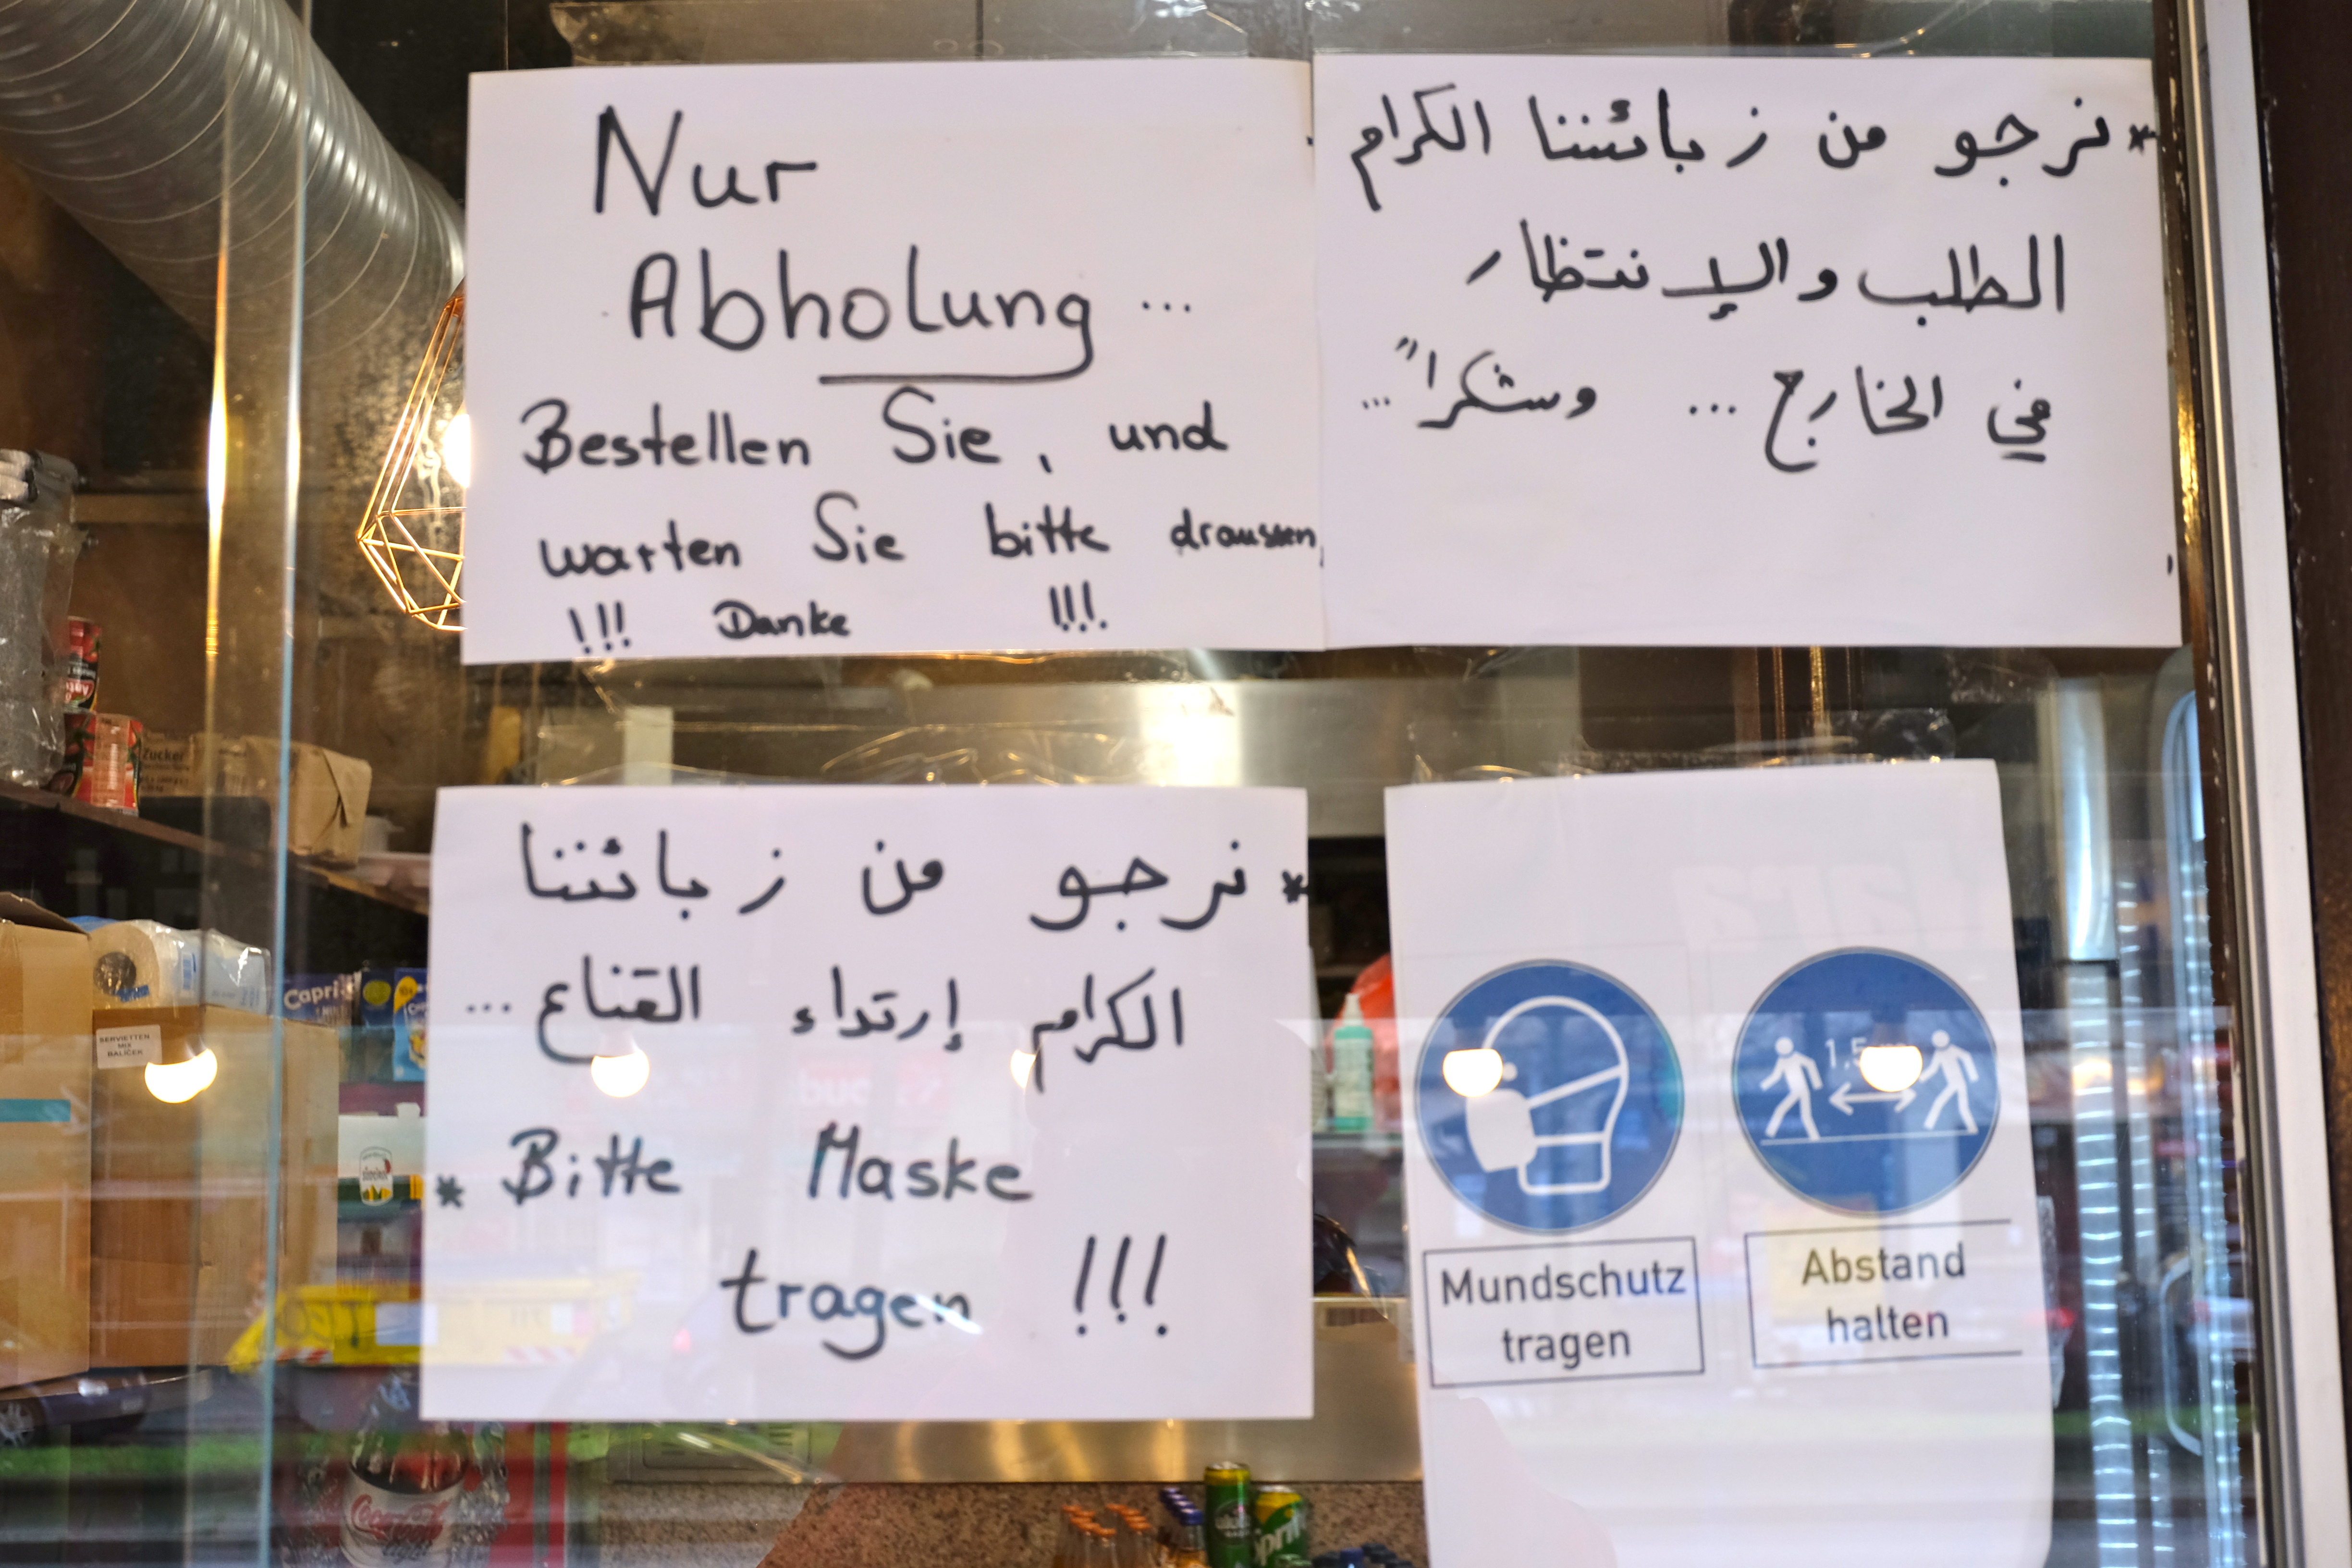 Nur
Abholung ...
Bestellen Sie, und
warten Sie bitte draussen,
!!! Danke !!!
*نرجو من زبائننا الكرام
الطلب والإنتظار
في الخارج ... وشكراً ...
*نرجو من زبائننا
الكرام إرتداء القناع ...
* Bitte Maske
tragen !!!
Mundschutz
tragen
1,5
Abstand
halten
Zucker
Capri-
SERVIETTEN
MIX
BALIČEK
Coca-Cola
light